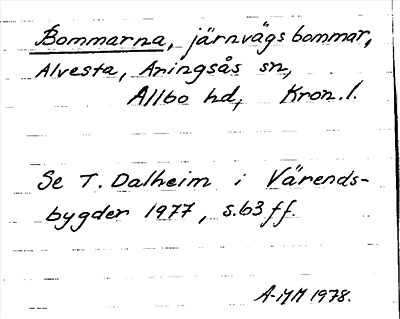 Bommarna, järnvägsbommar,
Alvesta, Aringsås sn,
Allbo hd, Kron.l.
Se T. Dalheim i Värends-
bygder 1977, s.63ff.
A-MM 1978.